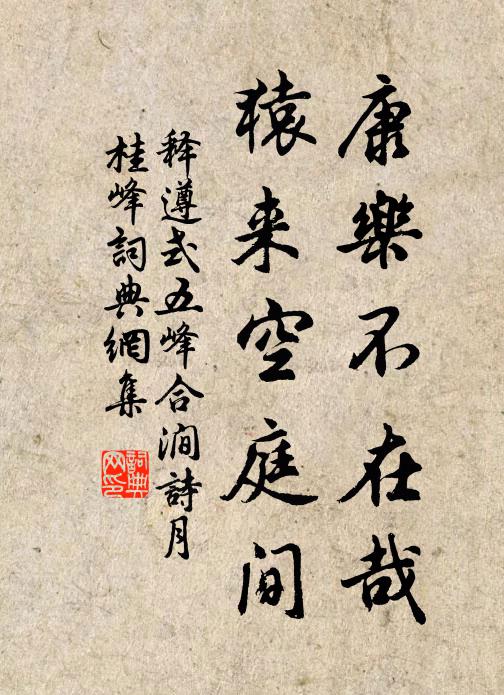 康樂不在哉
猿来空庭间
释遵式五峰合澗詩月
桂峰詞典網集
詞典
网印